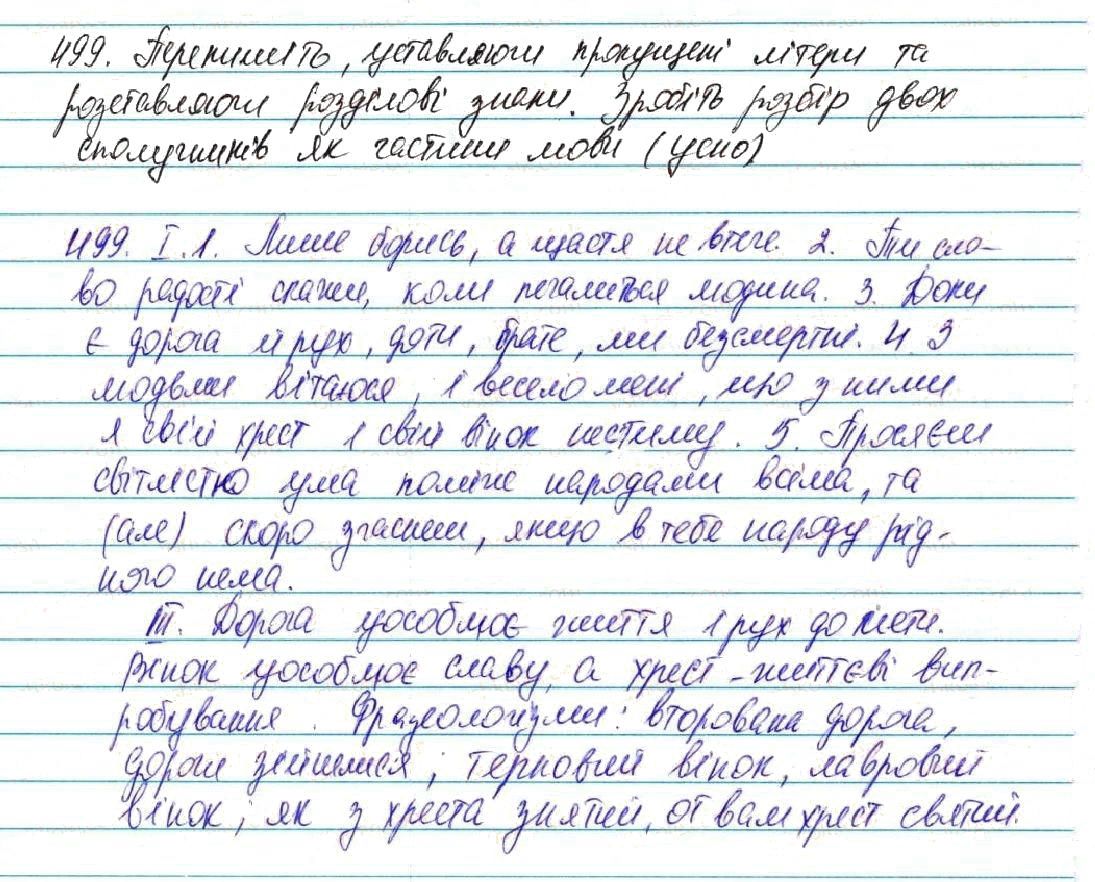 499. Перепишіть, уставляючи пропущені літери та
розставляючи розділові знаки. Зробіть розбір двох
сполучників як частини мови (усно)
499. I.1. Лише борись, а щастя не втече. 2. Ти сло-
во радості скажи, коли печалиться людина. 3. Доки
є дорога й рух, доти, брате, ми безсмертні. 4. З
людьми вітаюся, і весело мені, що з ними
я свій хрест і свій вінок нестиму. 5. Просяєш
світлістю ума поміж народами всіма, та
(але) скоро згаснеш, якщо в тебе народу рід-
ного нема.
III. Дорога уособлює життя і рух до мети.
Вінок уособлює славу, а хрест - життєві вип-
робування. Фразеологізми: вторована дорога,
дороги зійшлися; терновий вінок, лавровий
вінок; як з хреста знятий, от вам хрест святий.